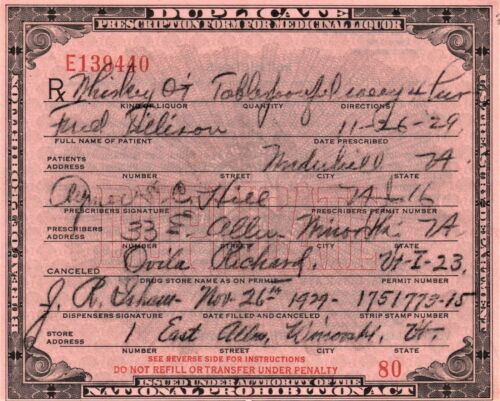 DUPLICATE
PRESCRIPTION FORM FOR MEDICINAL LIQUOR
E139440
BUREAU OF PROHIBITION
BUREAU OF PROHIBITION
Rx Whiskey Tablespoonful every 4 hrs
KIND OF LIQUOR QUANTITY DIRECTIONS
Fred 11-26-29
FULL NAME OF PATIENT DATE PRESCRIBED
PATIENTS ADDRESS Underhill
NUMBER STREET CITY STATE
C. Hill
PRESCRIBERS SIGNATURE PRESCRIBERS PERMIT NUMBER
DUPLICATE
PRESCRIBERS ADDRESS 33 E. Allen Winooski
NUMBER STREET CITY STATE
CANCELED Ovila Richard. Vt-I-23.
DRUG STORE NAME AS ON PERMIT PERMIT NUMBER
J. R. Nov-26th 1929- 1751773-15
DISPENSERS SIGNATURE DATE FILLED AND CANCELED STRIP STAMP NUMBER
STORE ADDRESS 1 East Allen, Winooski, Vt
NUMBER STREET CITY STATE
SEE REVERSE SIDE FOR INSTRUCTIONS
DO NOT REFILL OR TRANSFER UNDER PENALTY 80
ISSUED UNDER AUTHORITY OF THE
NATIONAL PROHIBITION ACT